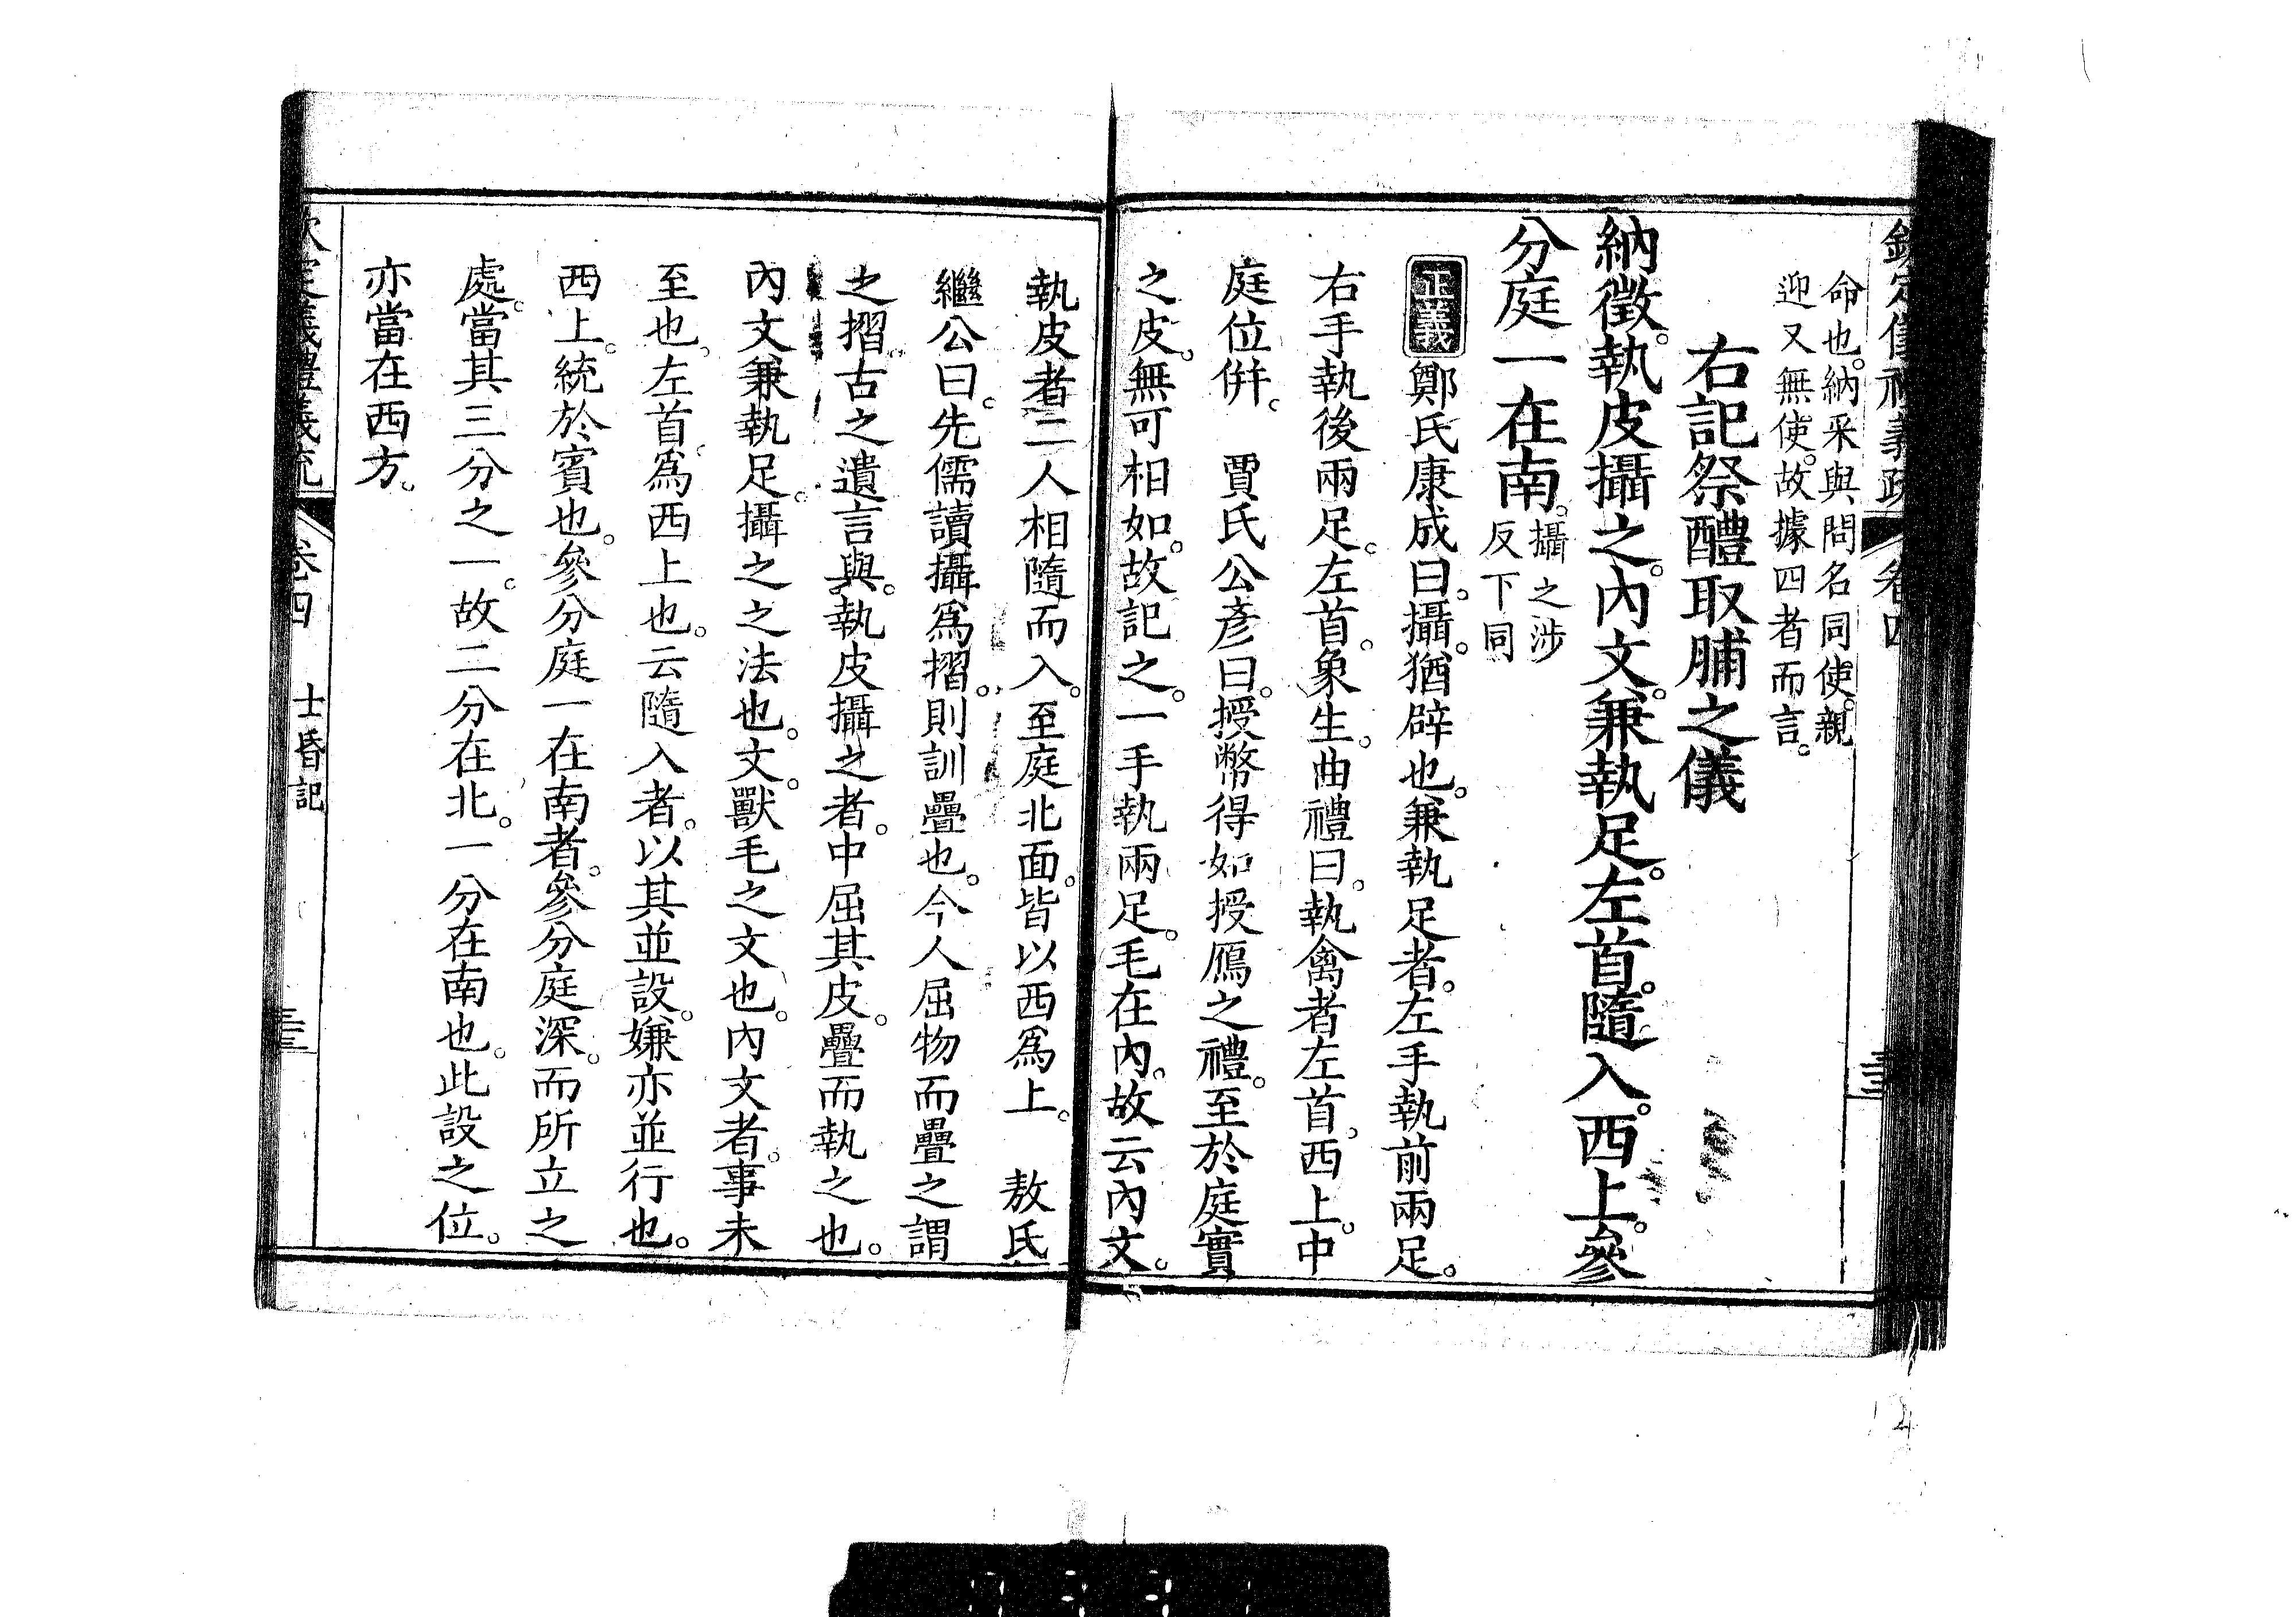 欽定儀禮義疏　卷四　三十三
命也。納采與問名同使。親
迎又無使。故據四者而言。
右記祭醴取脯之儀
納徵。執皮攝之。內文。兼執足。左首。隨入。西上。參
分庭一在南。攝之涉
反下同
正義鄭氏康成曰。攝。猶辟也。兼執足者。左手執前兩足。
右手執後兩足。左首。象生。曲禮曰。執禽者左首。西上。中
庭位併。　賈氏公彥曰。授幣得如授鴈之禮。至於庭實
之皮。無可相如。故記之。一手執兩足。毛在內。故云內文。
執皮者二人相隨而入。至庭北面。皆以西爲上。　敖氏
繼公曰。先儒讀攝爲摺。則訓疊也。今人屈物而疊之謂
之摺。古之遺言與。執皮攝之者。中屈其皮。疊而執之也。
內文兼執足。攝之之法也。文。獸毛之文也。內文者。事未
至也。左首。爲西上也。云隨入者。以其並設。嫌亦並行也。
西上。統於賓也。參分庭一在南者。參分庭深。而所立之
處。當其三分之一。故二分在北。一分在南也。此設之位。
亦當在西方。
欽定儀禮義疏　卷四　士昏記